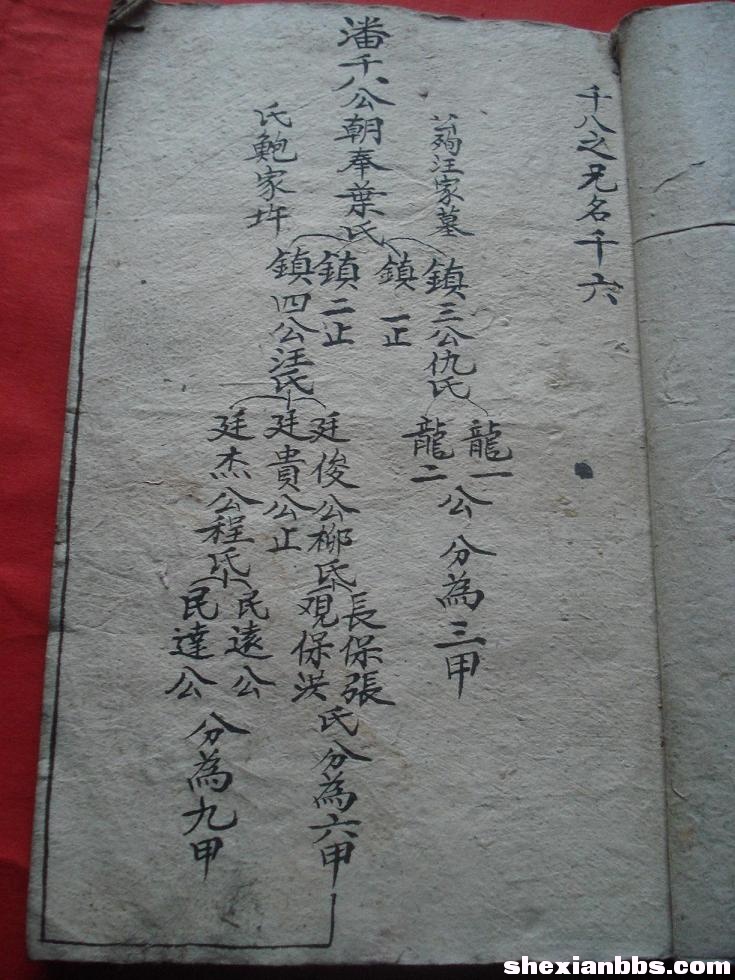 千八之兄名千六
公殉汪家墓
潘千八公朝奉葉氏
氏鮑家圲
鎮三公仇氏
鎮一止
鎮二止
鎮四公汪氏
龍一
龍二
公分為三甲
廷俊公柳氏
廷貴公止
廷杰公程氏
長保張
觀保洪
氏分為六甲
民遠公
民達公
分為九甲
shexianbbs.com